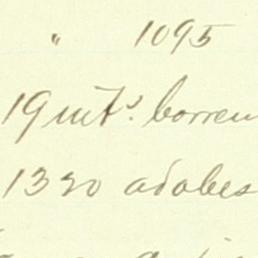 " 1095
19 mts. borren
1320 adobes